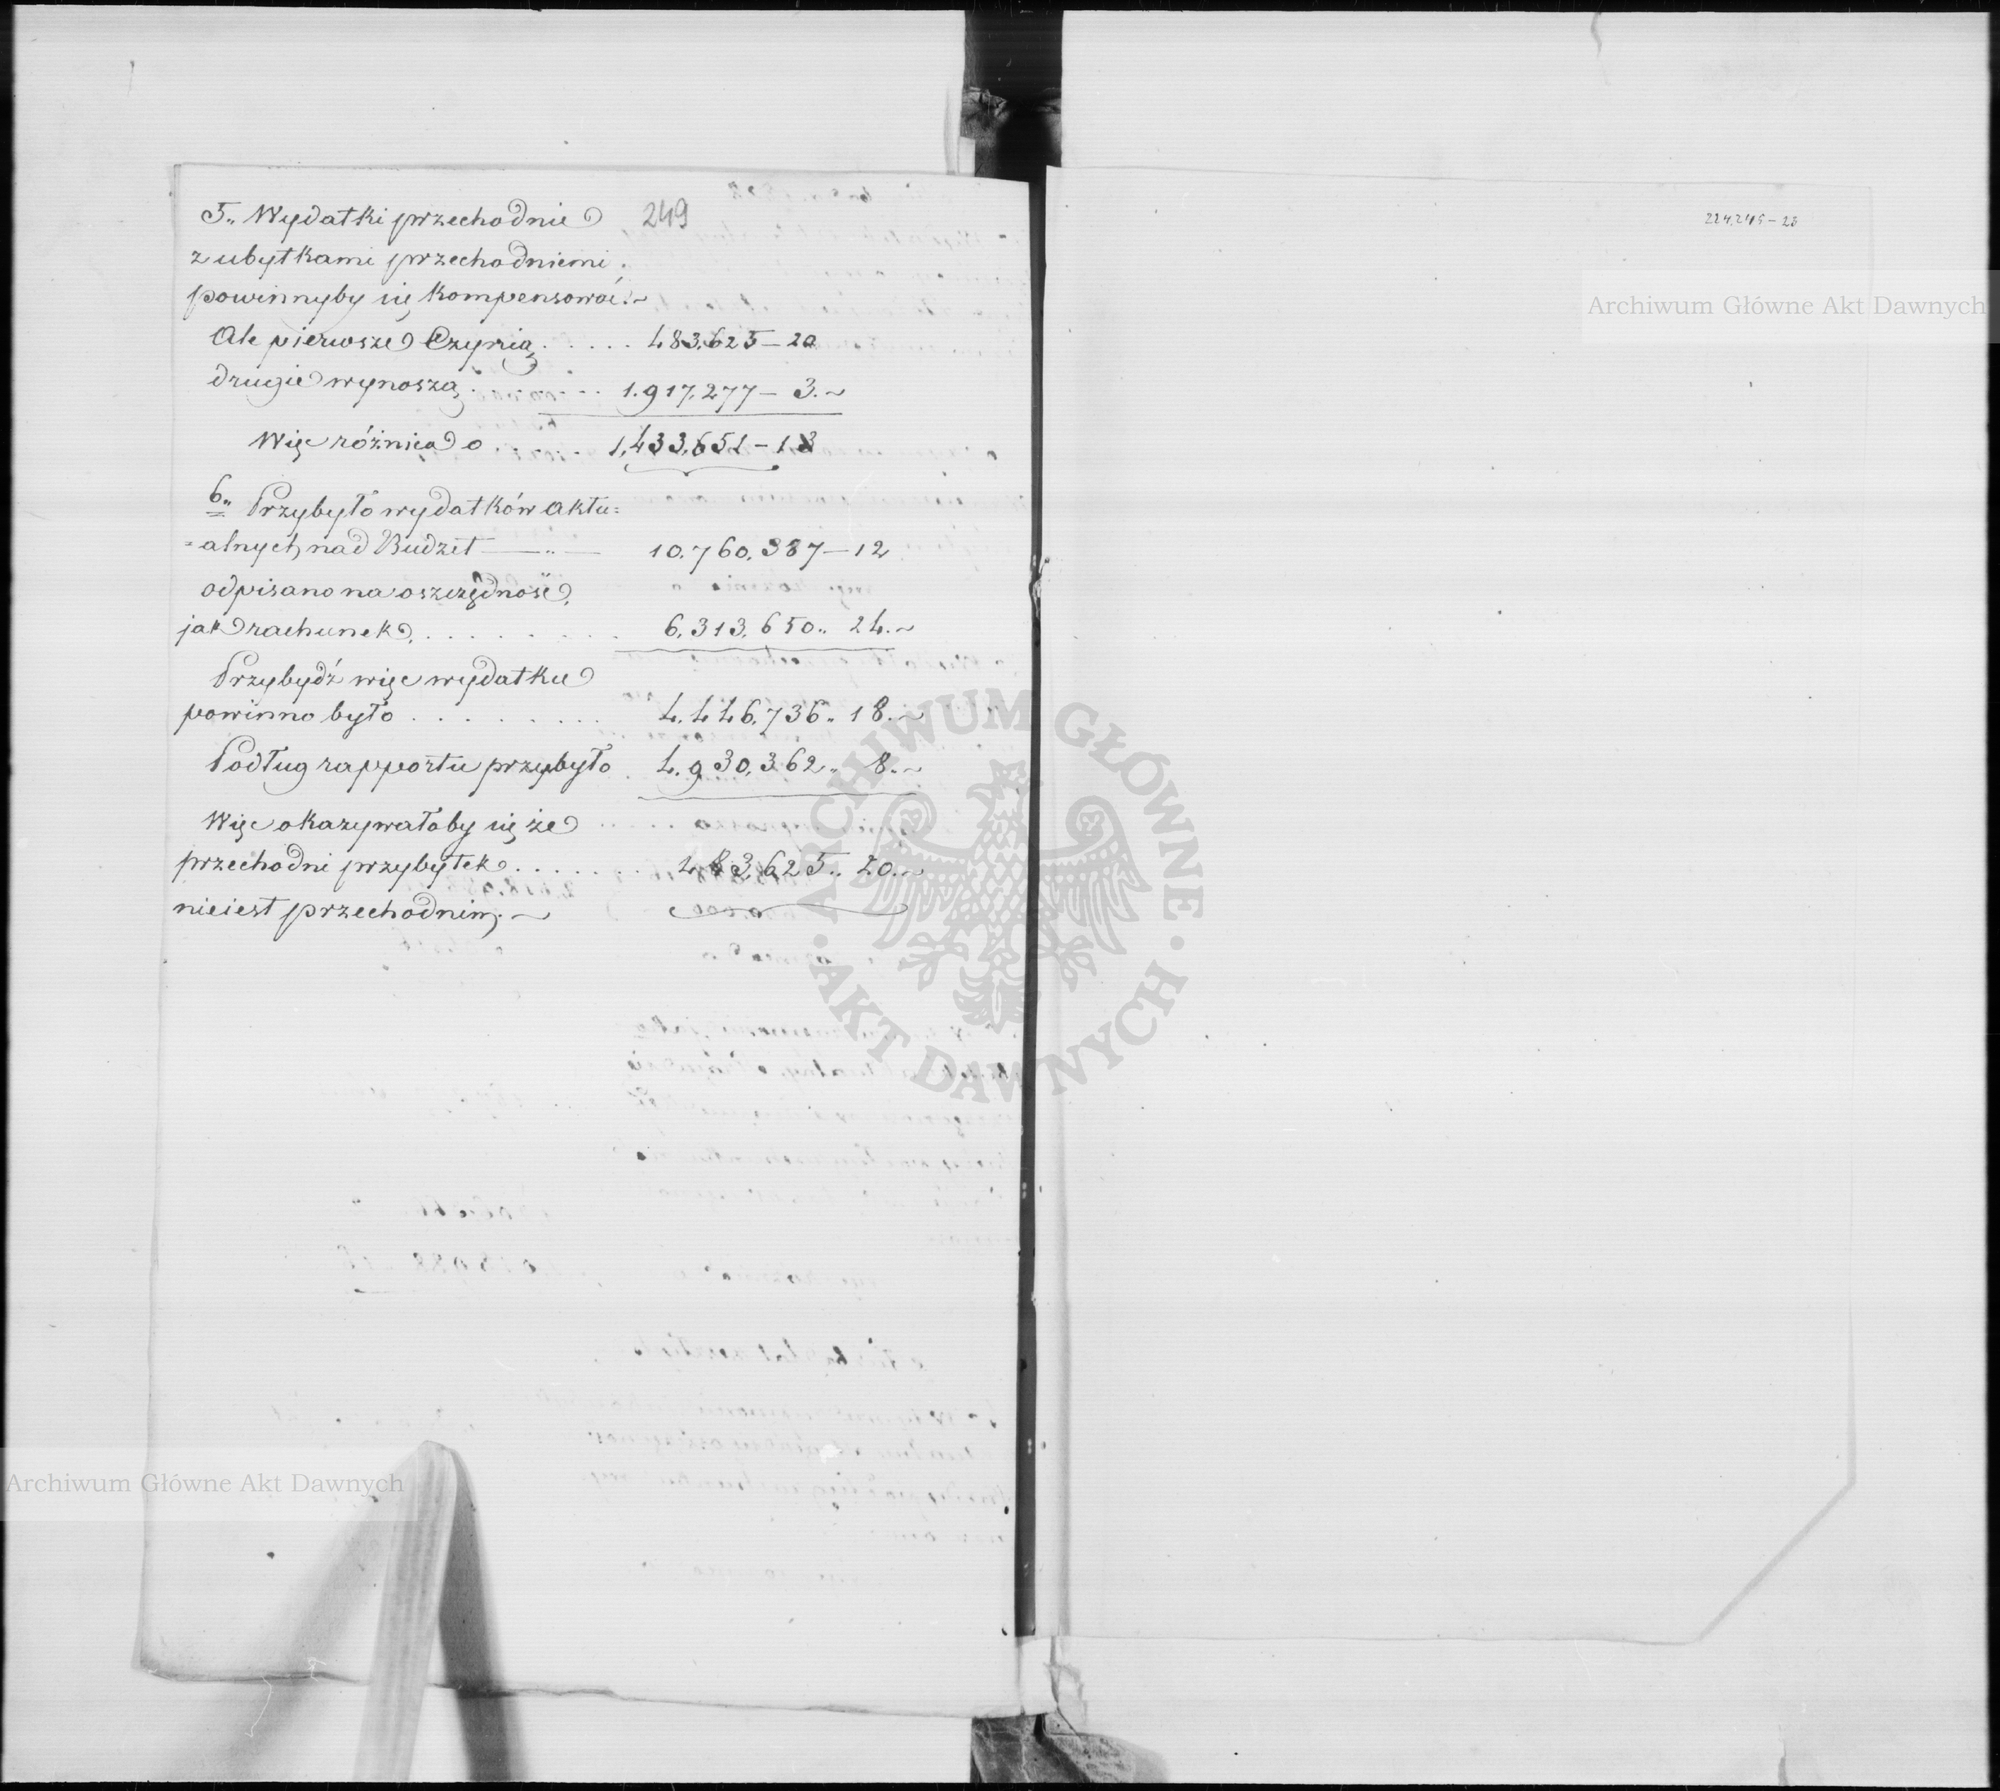 249
5„ Wydatki przechodnie
z ubytkami przechodniemi
powinnyby się kompensować.~
Ale pierwsze Czynią . . . . . 483,625 – 20
drugie wynoszą . . . . . . 1.917,277 – 3.~
Więc różnica o . . . . . 1,433,651 – 13
6„ Przybyło wydatków aktu=
=alnych nad Budżet —„— 10.760,387 – 12
odpisano na oszczędność,
jak rachunek, . . . . . . . . . 6,313,650„ 24.~
Przybydź więc wydatku
powinno było . . . . . . . . . 4.446,736„ 18.~
Podług rapportu przybyło . 4.930,362„ 8.~
Więc okazywałoby się że
przechodni przybytek . . . . . . . 483,625„ 20.~
nie iest przechodnim. ~
224.245–23
Archiwum Główne Akt Dawnych
Archiwum Główne Akt Dawnych
· ARCHIWUM GŁÓWNE · AKT DAWNYCH